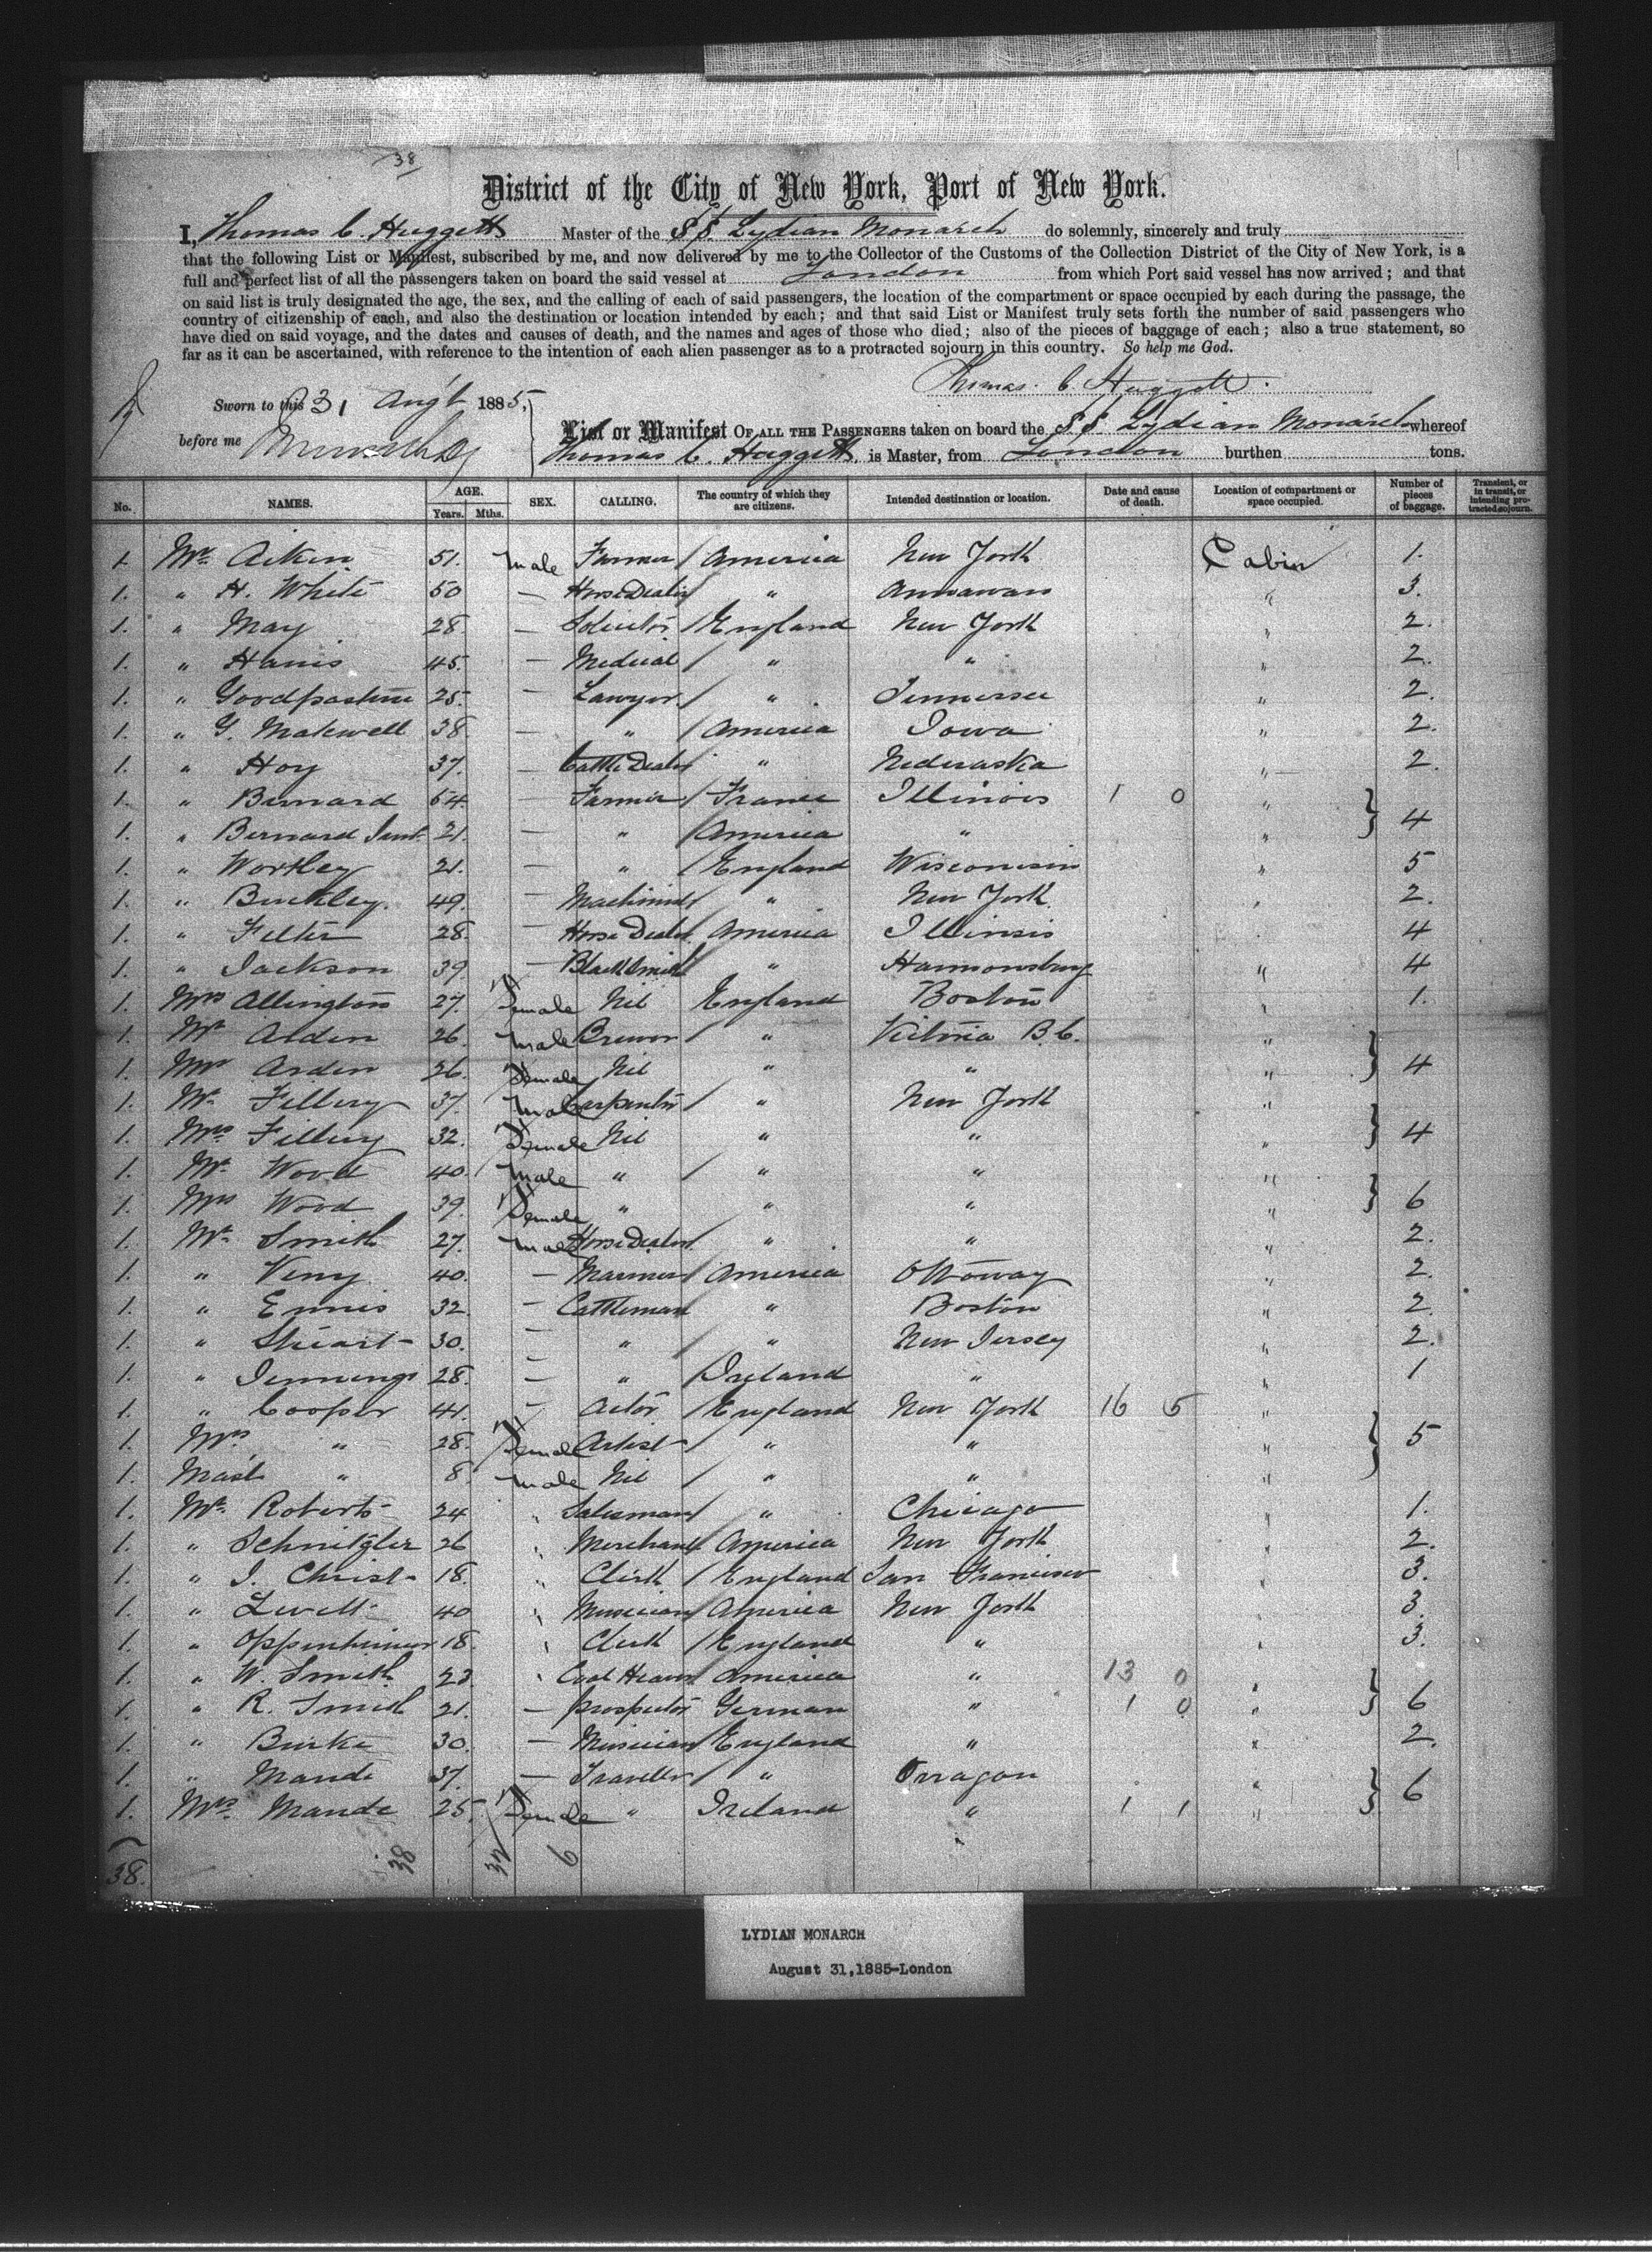 38
District of the City of New York, Port of New York.
I, Thomas C. Huggett Master of the SS. Lydian Monarch do solemnly, sincerely and truly
that the following List or Manifest, subscribed by me, and now delivered by me to the Collector of the Customs of the Collection District of the City of New York, is a
full and perfect list of all the passengers taken on board the said vessel at London from which Port said vessel has now arrived; and that
on said list is truly designated the age, the sex, and the calling of each of said passengers, the location of the compartment or space occupied by each during the passage, the
country of citizenship of each, and also the destination or location intended by each; and that said List or Manifest truly sets forth the number of said passengers who
have died on said voyage, and the dates and causes of death, and the names and ages of those who died; also of the pieces of baggage of each; also a true statement, so
far as it can be ascertained, with reference to the intention of each alien passenger as to a protracted sojourn in this country. So help me God.
Thomas. C. Huggett.
Sworn to this 31 Aug't 1885,
before me
List or Manifest OF ALL THE PASSENGERS taken on board the SS Lydian Monarch whereof
Thomas C. Huggett is Master, from London burthen tons.
No. NAMES. AGE. Years. Mths. SEX. CALLING. The country of which they are citizens. Intended destination or location. Date and cause of death. Location of compartment or space occupied. Number of pieces of baggage. Transient, or in transit, or intending protracted sojourn.
1 Mr. Aiken 51. male Farmer / America New York Cabin 1.
1. " H. White 50 — Horse Dealer " Annawan " 3.
1. " May 28. — Solicitor / England New York " 2.
1. " Harris 45. — Medical / " " " 2.
1. " Goodpasture 25. — Lawyer / " Tennersee " 2.
1. " G. Makwell 38. — " / America Iowa " 2.
1. " Hoy 37. — Cattle Dealer " Nederaska " 2.
1. " Bernard 54. — Farmer / France Illinois 1 0 "
1. " Bernard Junr. 21. — " / America " " } 4
1. " Wortley 21. — " / England Wisconisin " 5
1. " Buckley. 49. — Machinist / " New York " 2.
1. " Felter 28. — Horse Dealer America Illinois 4
1. " Jackson 39. — BlackSmith " Harmonsburg " 4
1. Mrs Allington 27. Female Nil England Boston " 1.
1. Mr Arden 26. male Brewer / " Victoria B.C. "
1. Mrs Arden 26. Female Nil " " " } 4
1. Mr. Fillery 37. male Carpenter / " New York "
1. Mrs Fillery 32. Female Nil " " " } 4
1. Mr. Wood 40. male " / " " "
1. Mrs Wood 39. Female " " " " } 6
1. Mr. Smith 27. male Horse Dealer " " " 2.
1. " Very 40. — Mariner / America Ottoway " 2.
1. " Ennis 32. — Cattleman " Boston " 2.
1. " Stuart 30. — " / " New Jersey " 2.
1. " Jennings 28. — " / Ireland " " 1
1. " Cooper 41. — Actor / England New York 16 5 "
1. Mrs. " 28. Female Artist / " " " } 5
1. Mast " 8. male Nil / " " "
1. Mr. Roberts 24 " Salesman / " Chicago " 1.
1. " Schnitzler 26 " Merchant America New York " 2.
1. " J. Christ 18. " Clerk / England San Francisco " 3.
1. " Levett 40 " Musician / America New York " 3.
1. " Oppenheimer 18. " Clerk / England " " 3.
1. " W. Smith 23 " America " 13 0 "
1. " R. Smith 21. — prospector German " 1 0 " } 6
1. " Burke 30. — Musician / England " " 2.
1. " Mande 37. — Traveller / " Orragon "
1. Mrs. Mande 25. Female " Ireland " 1 1 " } 6
38. 38 32 6
LYDIAN MONARCH
August 31,1885-London